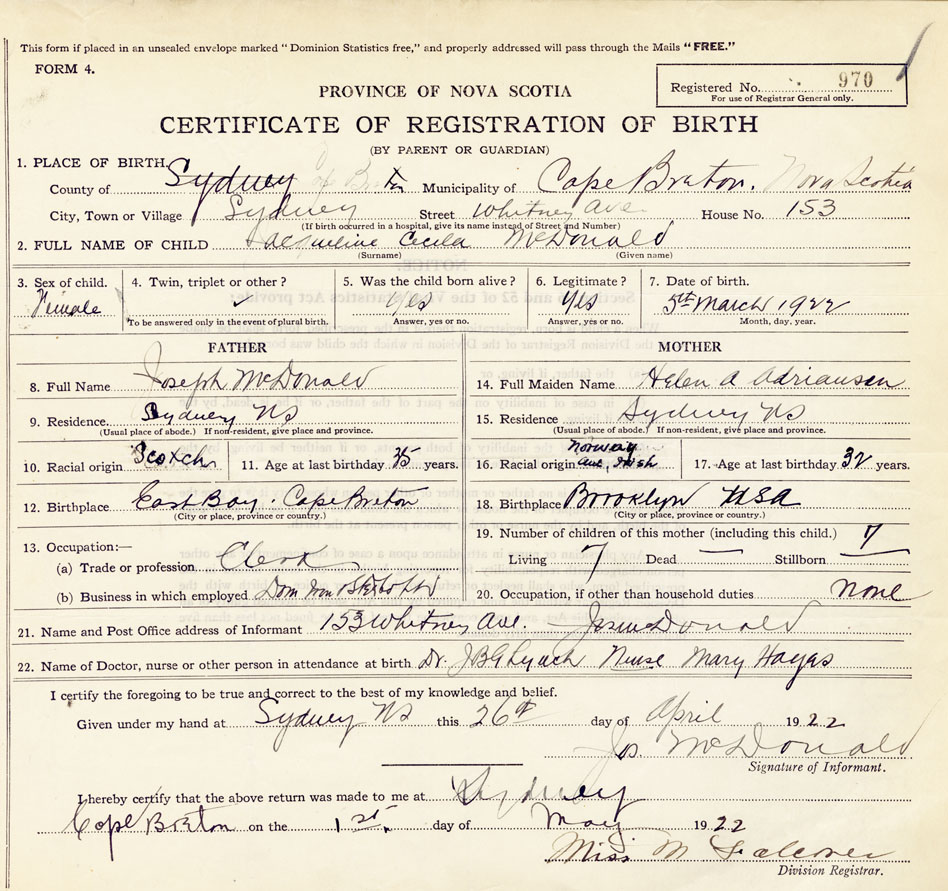 This form if placed in an unsealed envelope marked "Dominion Statistics free," and properly addressed will pass through the Mails "FREE."
FORM 4.
Registered No. 970
For use of Registrar General only.
PROVINCE OF NOVA SCOTIA
CERTIFICATE OF REGISTRATION OF BIRTH
(BY PARENT OR GUARDIAN)
1. PLACE OF BIRTH.
County of Sydney Municipality of Cape Breton. Nova Scotia
City, Town or Village Sydney Street Whitney Ave House No. 153
(If birth occurred in a hospital, give its name instead of Street and Number)
2. FULL NAME OF CHILD Jacqueline Cecila McDonald
(Surname) (Given name)
3. Sex of child. 4. Twin, triplet or other? 5. Was the child born alive? 6. Legitimate? 7. Date of birth.
Female Yes Yes 5th March 1922
To be answered only in the event of plural birth. Answer, yes or no. Answer, yes or no. Month, day, year.
FATHER MOTHER
8. Full Name Joseph McDonald 14. Full Maiden Name Helen A Adriansen
9. Residence. Sydney NS 15. Residence Sydney NS
(Usual place of abode.) If non-resident, give place and province. (Usual place of abode.) If non-resident, give place and province.
10. Racial origin Scotch 11. Age at last birthday 35 years. 16. Racial origin Norway and Irish 17. Age at last birthday 32 years.
12. Birthplace East Bay. Cape Breton 18. Birthplace Brooklyn USA
(City or place, province or country.) (City or place, province or country.)
13. Occupation:— 19. Number of children of this mother (including this child.) 7
(a) Trade or profession Clerk Living 7 Dead — Stillborn —
(b) Business in which employed Dom 20. Occupation, if other than household duties none
21. Name and Post Office address of Informant 153 Whitney Ave. Jos McDonald
22. Name of Doctor, nurse or other person in attendance at birth Dr. Lynch Nurse Mary Hayes
I certify the foregoing to be true and correct to the best of my knowledge and belief.
Given under my hand at Sydney NS this 26th day of April 1922
Jos McDonald
Signature of Informant.
I hereby certify that the above return was made to me at Sydney
Cape Breton on the 1st. day of May 1922
Miss M Falconer
Division Registrar.